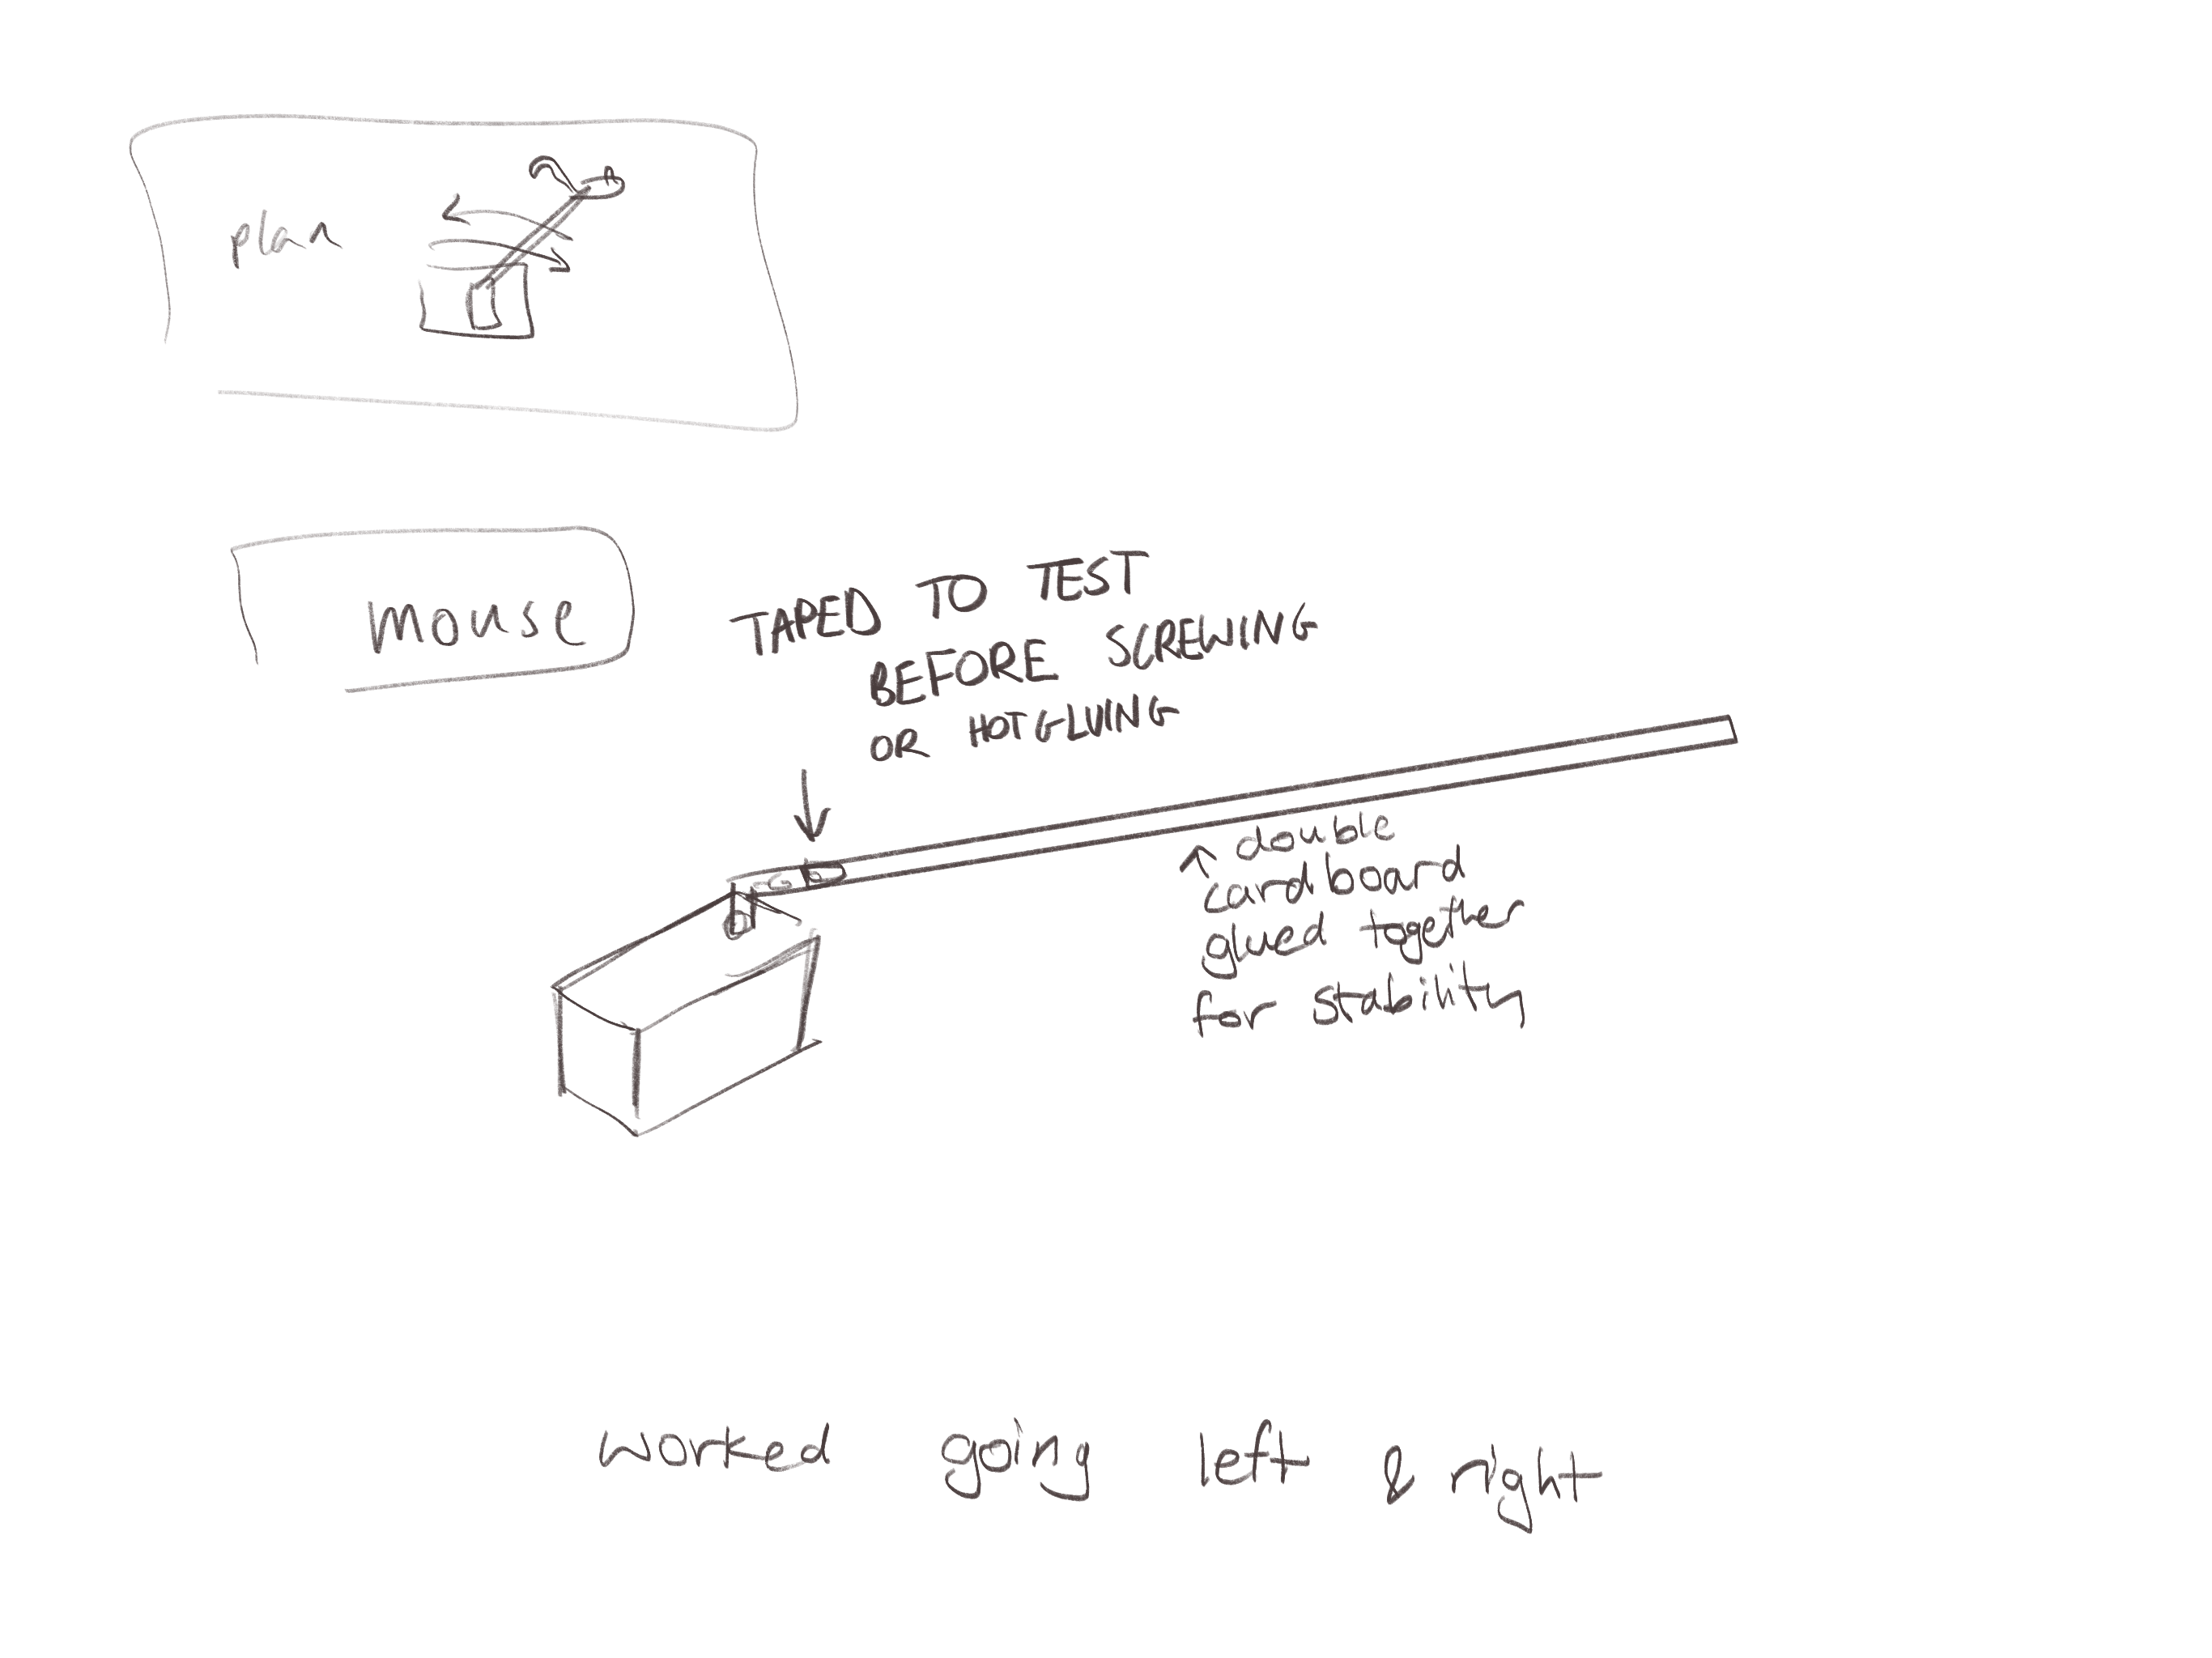 plan
mouse
TAPED TO TEST
BEFORE SCREWING
OR HOTGLUING
double
cardboard
glued together
for stability
worked going left & right